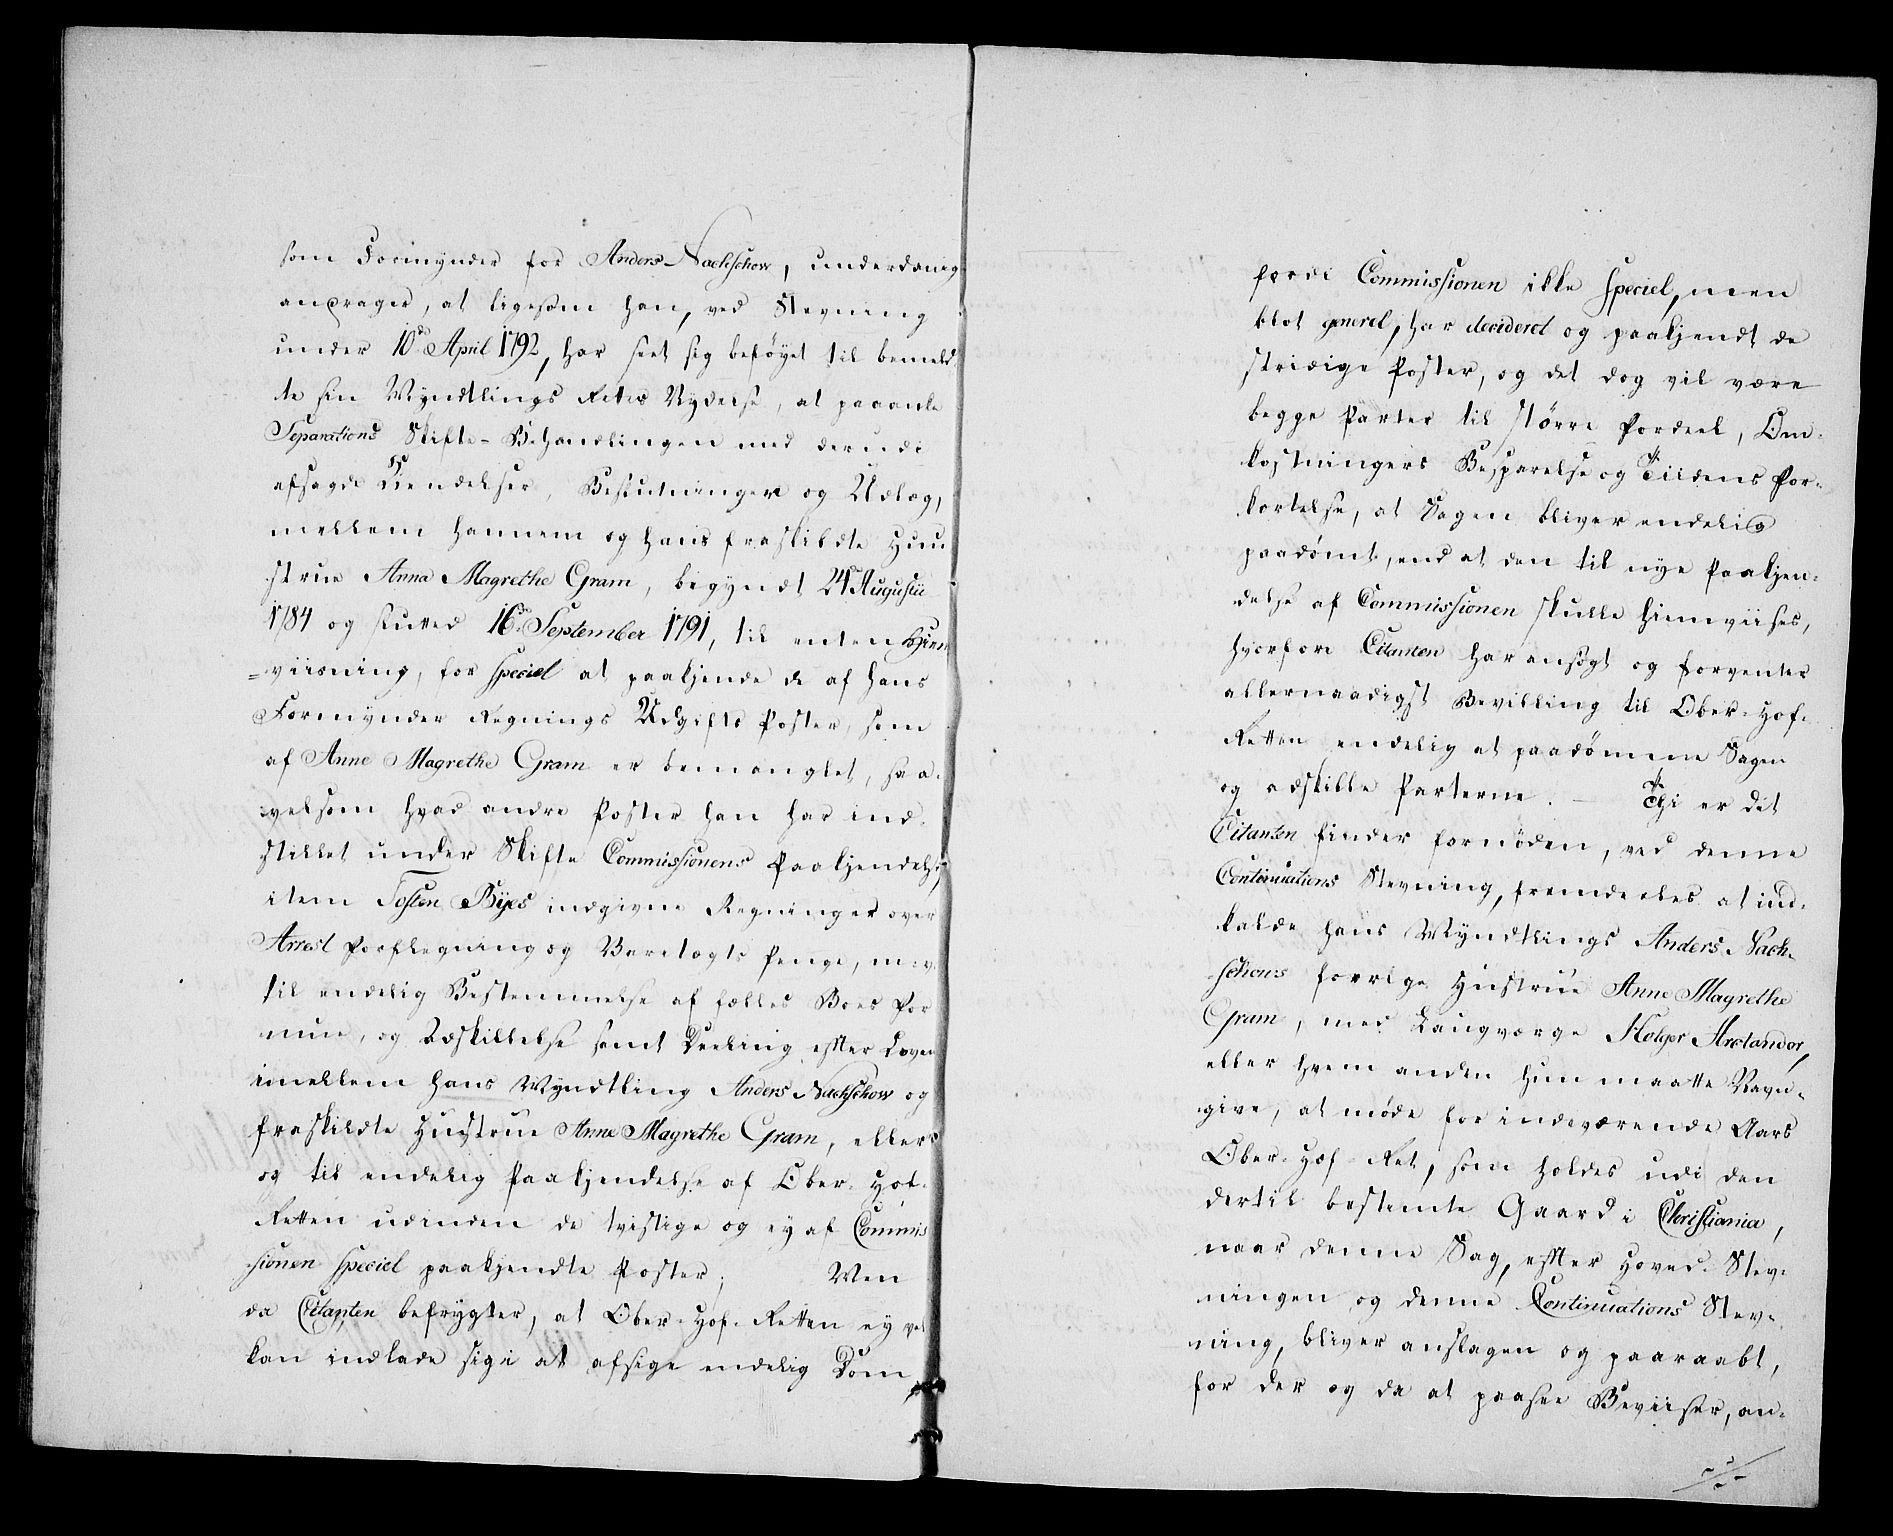 som Formynder for Anders Nachschow, underdanig
andrager, at ligesom han, ved Stevning
under 10de April 1792, har seet sig beføyet til bemeld-
te sin Myndtlings Retts Nydelse, at paaanke
Separations Skifte-Behandlingen med derudi
afsagde Kiendelser, Beslutninger og Udlæg,
mellem hannem og hans fraskildte Huu
strue Anna Magrethe Gram, begyndt 24 Augustii
1784 og slutted 16de September 1791, til enten Hjem
=viisning, for speciel at paakjende de af hans
Formynder Regnings Udgifts Poster, som
af Anne Magrethe Gram er bemanglet, saa-
velsom hvad andre Poster han har ind-
stillet under Skifte Commissionens Paakjendelse,
item Tosten Byes indgivne Regninger over
Arrest Forflegning og Varetægts Penge, m: v:
til endelig Bestemmelse af fælles Boes For
mue, og Adskillelse samt Deeling efter Loven
imellem hans Myndtling Anders Nachschow og
fraskildte Hustrue Anne Magrethe Gram, ellers
og til endelig Paakjendelse af Ober-Hof-
Retten udinden de tvistige og ey af Commis
sionen speciel paakjendte Poster; Men
da Citanten befrygter, at Ober-Hof-Retten ey vel
kan indlade sig i at afsige endelig Dom
fordi Commissionen ikke speciel, men
blot generel, har decideret og paakjendt de
stridige Poster, og det dog vil være
begge Parter til større Fordeel, Om-
kostningers Besparelse og Tiidens For-
kortelse, at Sagen bliver endelig
paadømt, end at den til nye Paakjen-
delse af Commissionen skulle hiemviises,
hvorfore Citanten har ansøgt og forventer
allernaadigst Bevilling til Ober-Hof-
Retten endelig at paadømme Sagen
og adskille Parterne. — Thi er det
Citanten finder fornøden, ved denne
Continuations Stevning, fremdeeles at ind-
kalde hans Myndtlings Anders Nach-
schows forrige Hustrue Anne Magrethe
Gram, med Laugværge Holger Arctander,
eller hvem anden hun maatte Navn-
give, at møde for indeværende Aars
Ober-Hof-Ret, som holdes udi den
dertil bestemte Gaard i Christiania,
naar denne Sag, efter Hoved-Stev-
ningen og denne Continuations Stev-
ning, bliver anslagen og paaraabt,
for der og da at paasee Beviiser, an-